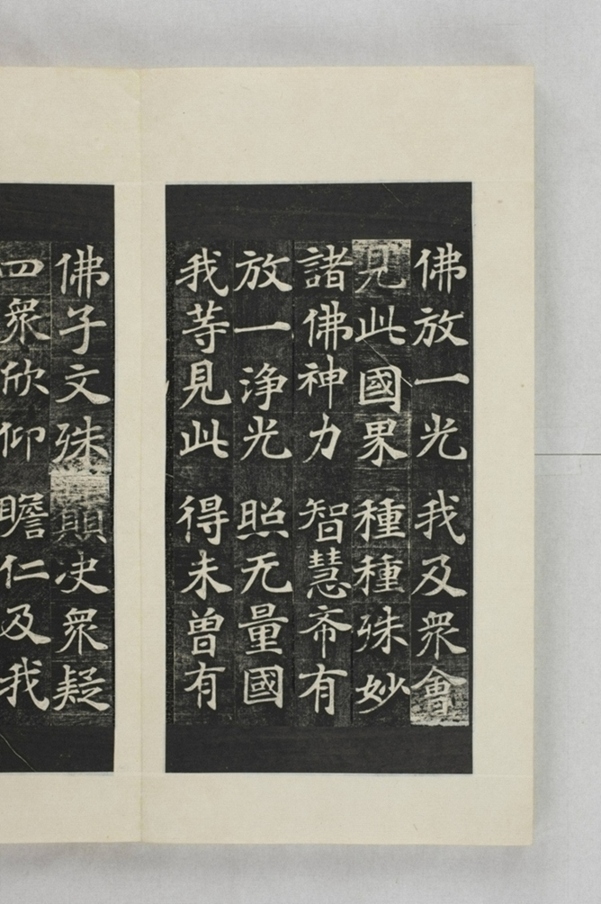 佛放一光 我及衆會
見此國界 種種殊妙
諸佛神力 智慧希有
放一淨光 照无量國
我等見此 得未曾有
佛子文殊 願决衆疑
四衆欣仰 瞻仁及我